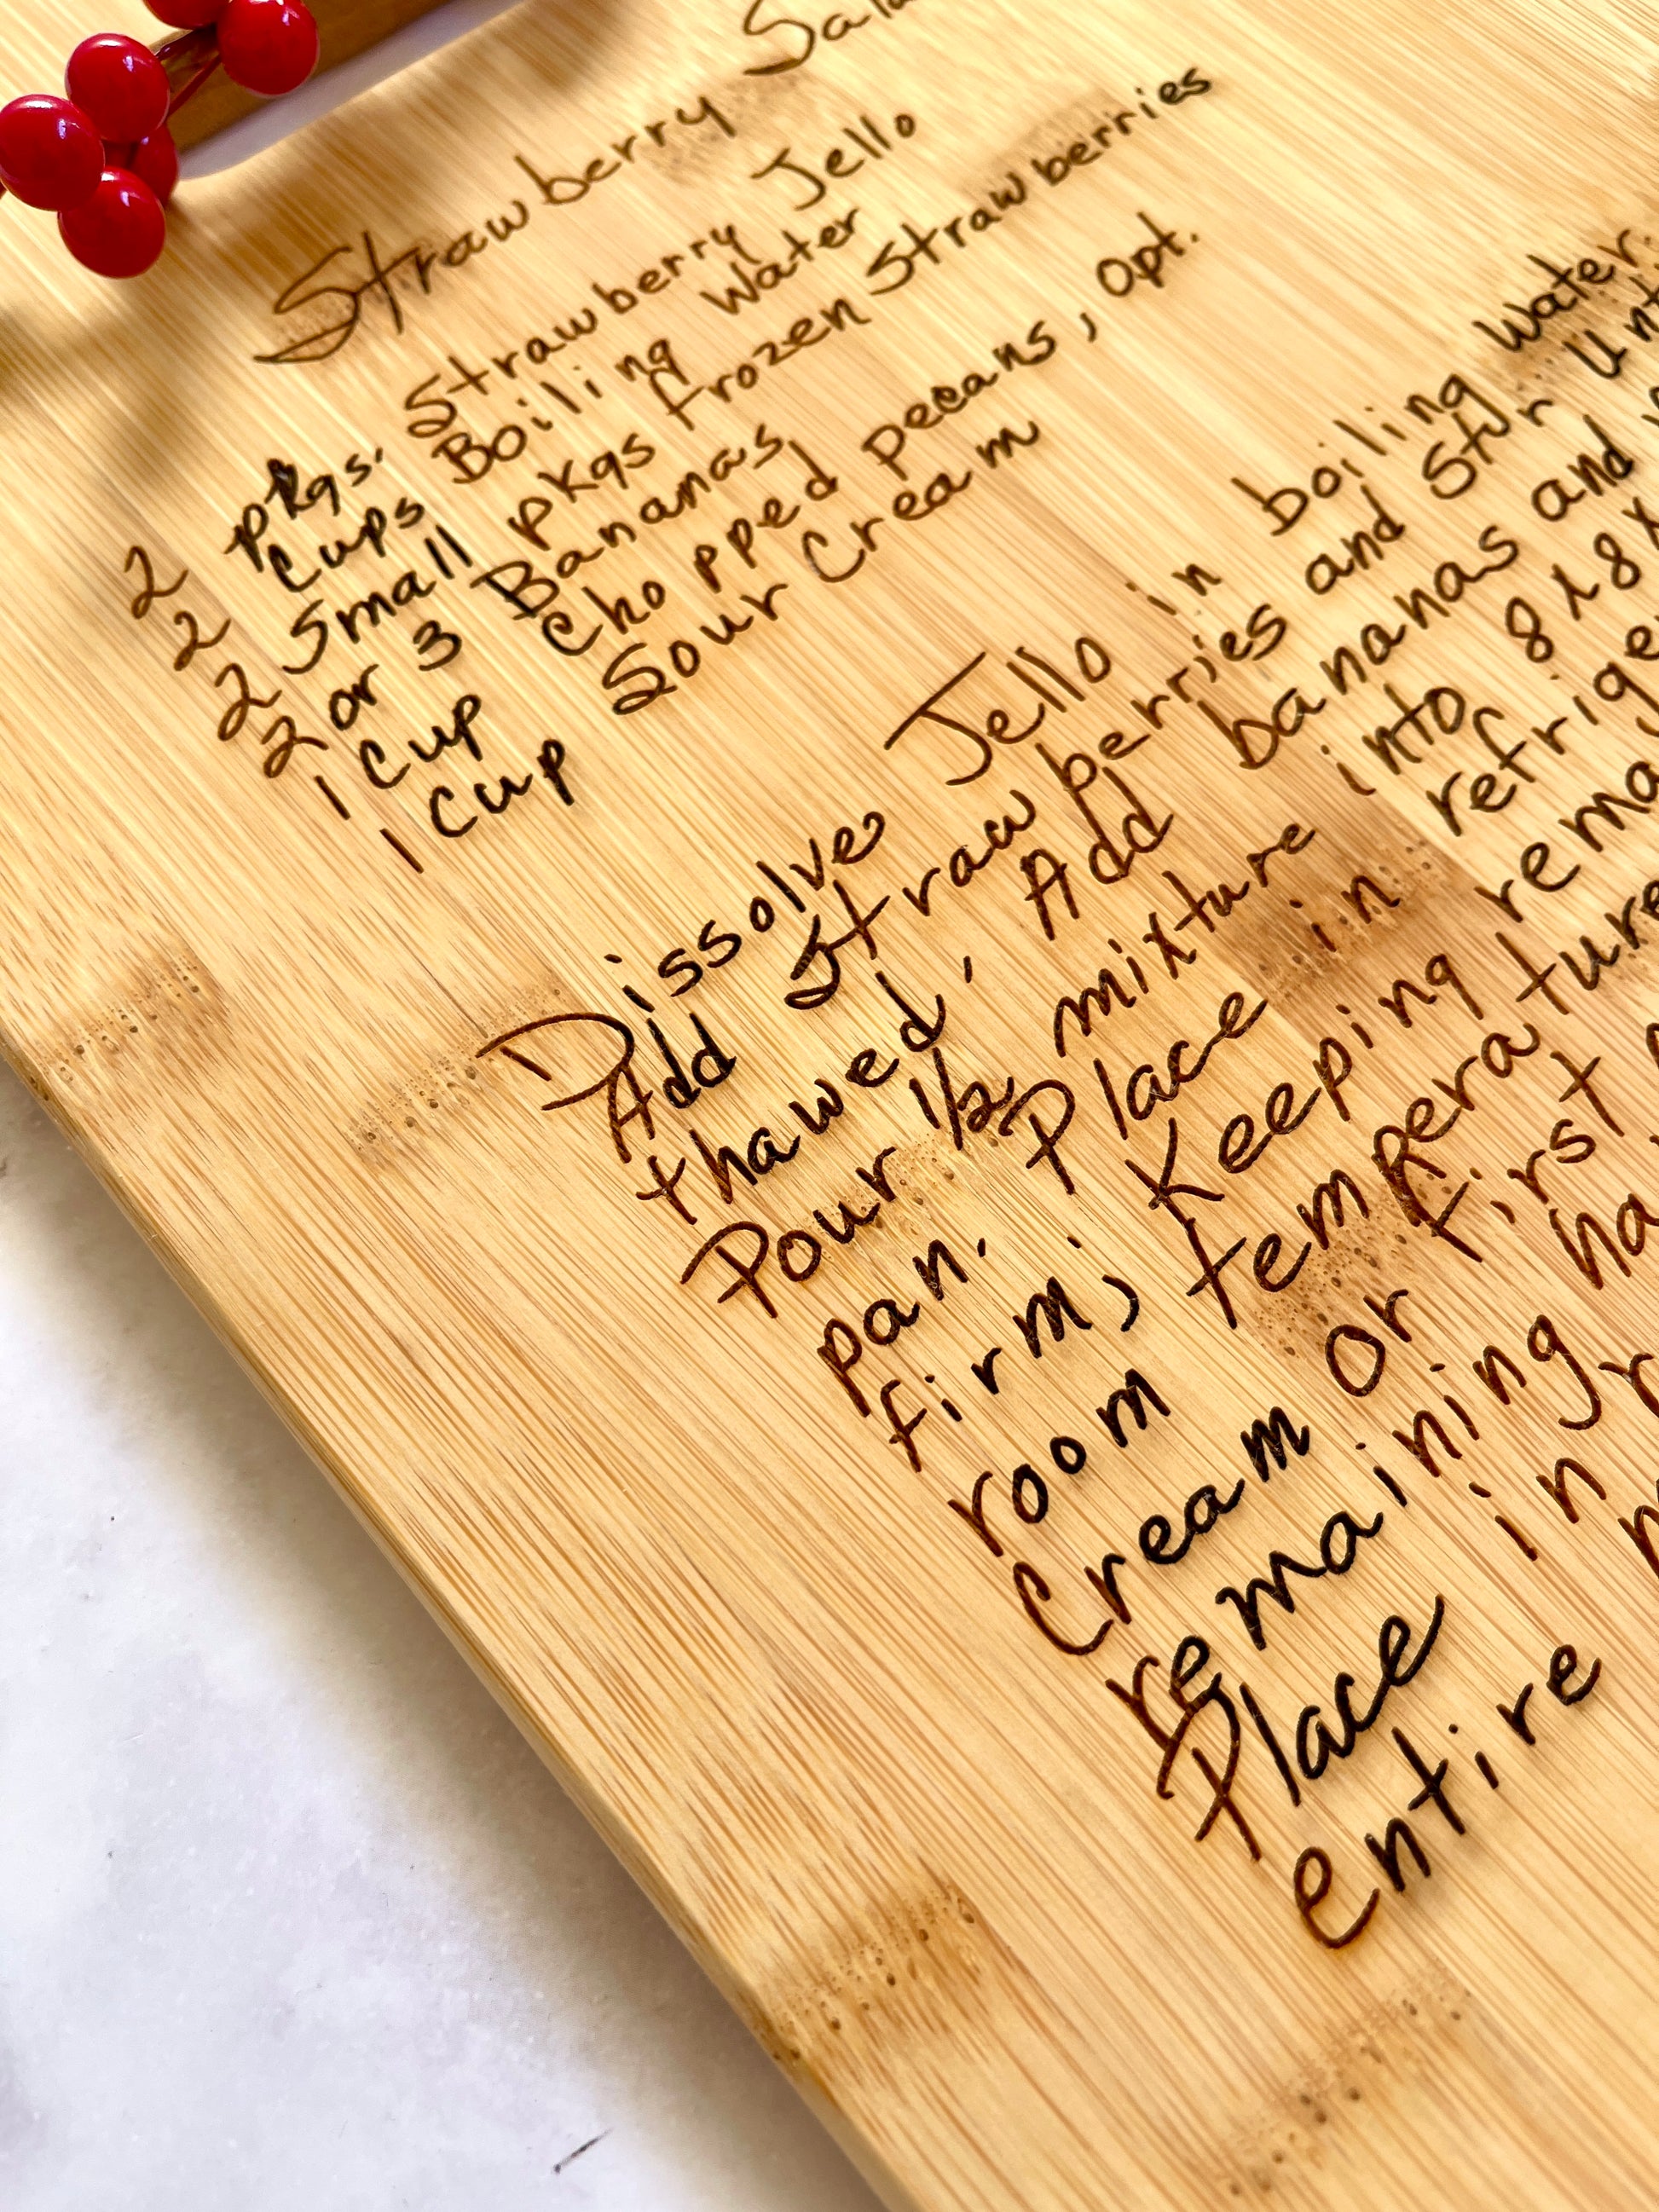 Strawberry
2 pkgs. Strawberry Jello
2 Cups Boiling Water
2 Small pkgs frozen Strawberries
2 or 3 Bananas
1 Cup Chopped pecans, opt.
1 Cup Sour Cream
Dissolve Jello in boiling Water.
Add Strawberries and Stir
thawed. Add bananas and
Pour 1/2 mixture into 8x8x
pan. Place in
firm, Keeping
room temperature
Cream or First
remaining
Place in
entire